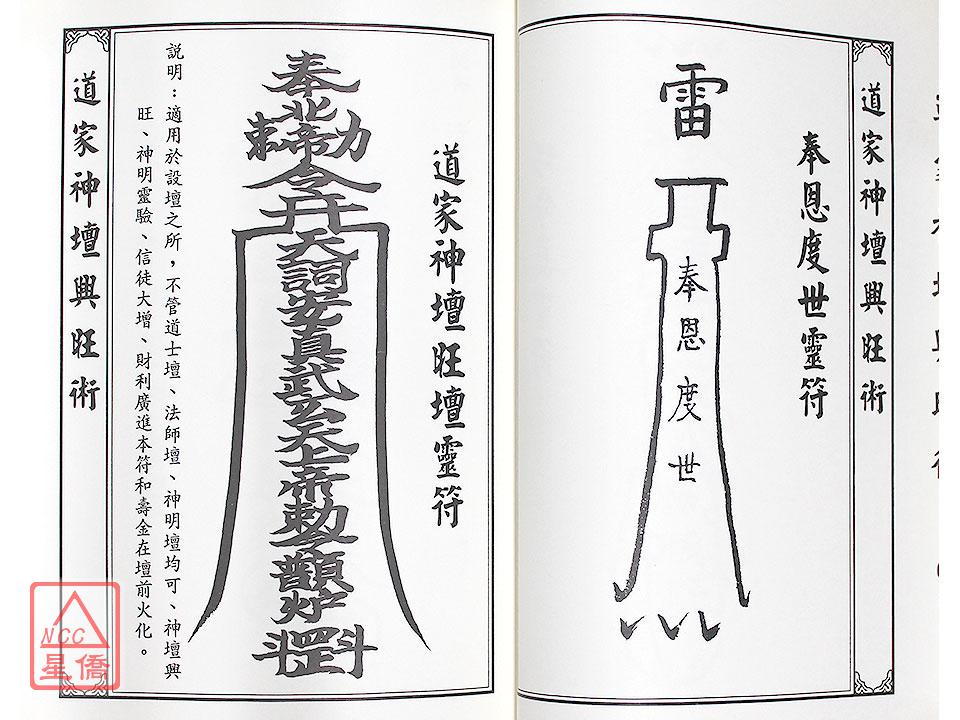 道家神壇興旺術
奉恩度世靈符
雷
奉恩度世
道家神壇旺壇靈符
奉
北帝
敕令
天
真武玄天上帝敕
說明：適用於設壇之所，不管道士壇、法師壇、神明壇均可、神壇興
旺、神明靈驗、信徒大增、財利廣進本符和壽金在壇前火化。
道家神壇興旺術
NCC
星僑